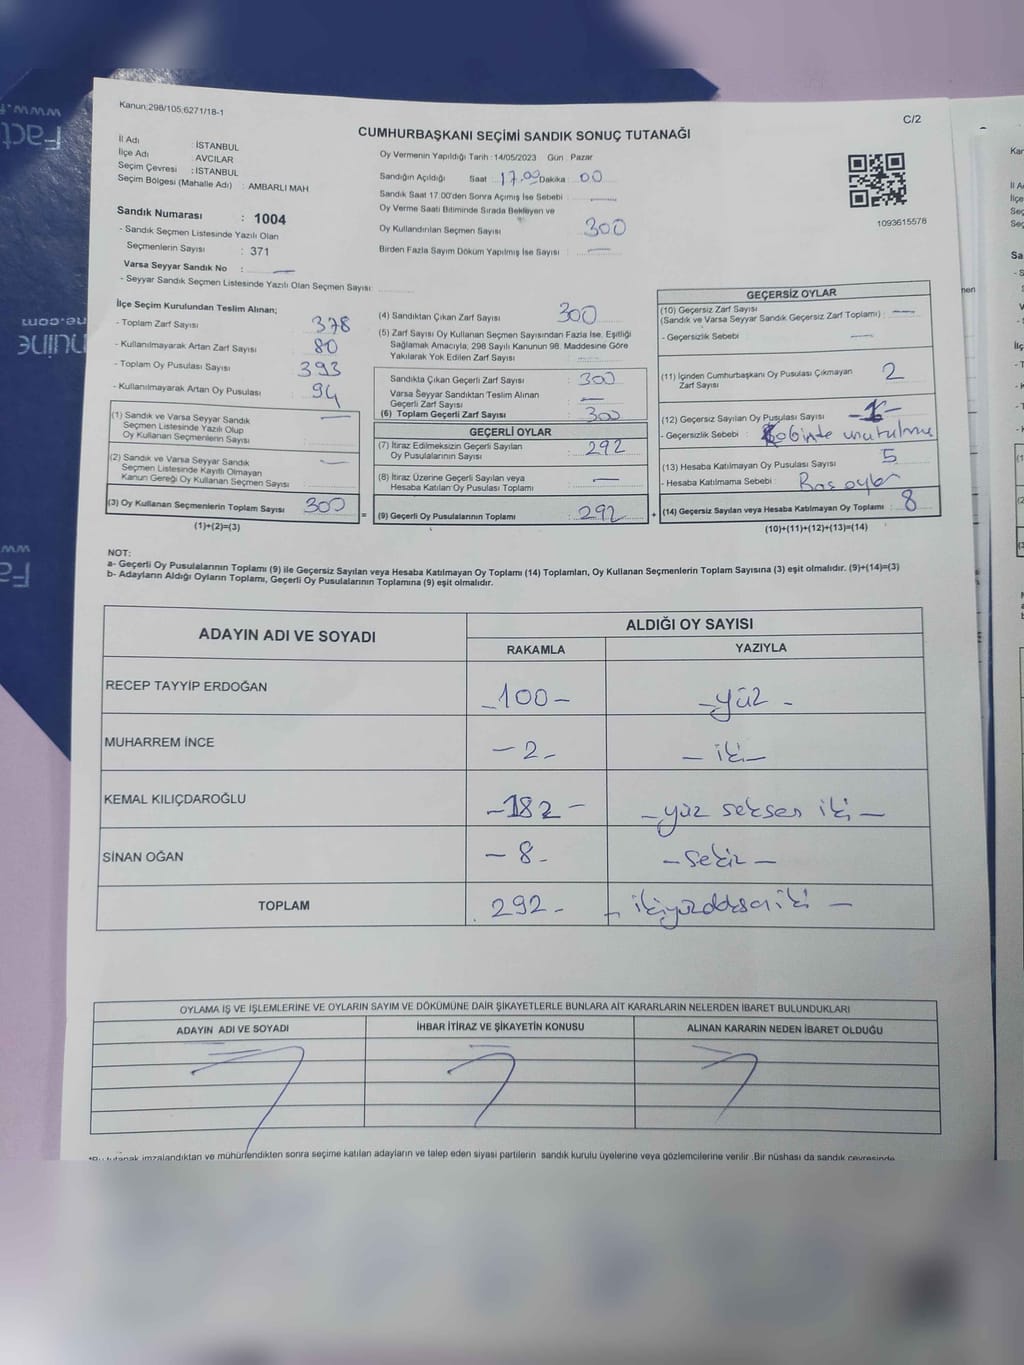 Kanun;298/105;6271/18-1
C/2
CUMHURBAŞKANI SEÇİMİ SANDIK SONUÇ TUTANAĞI
İl Adı : İSTANBUL
İlçe Adı : AVCILAR
Seçim Çevresi : İSTANBUL
Seçim Bölgesi (Mahalle Adı) : AMBARLI MAH
Sandık Numarası : 1004
- Sandık Seçmen Listesinde Yazılı Olan
Seçmenlerin Sayısı : 371
Varsa Seyyar Sandık No : —
- Seyyar Sandık Seçmen Listesinde Yazılı Olan Seçmen Sayısı:
Oy Vermenin Yapıldığı Tarih : 14/05/2023 Gün : Pazar
Sandığın Açıldığı Saat : 17.00 Dakika : 00
Sandık Saat 17.00'den Sonra Açımış İse Sebebi : —
Oy Verme Saati Bitiminde Sırada Bekleyen ve
Oy Kullandırılan Seçmen Sayısı 300
Birden Fazla Sayım Döküm Yapılmış İse Sayısı : —
1093615578
İlçe Seçim Kurulundan Teslim Alınan;
- Toplam Zarf Sayısı 378
- Kullanılmayarak Artan Zarf Sayısı : 80
- Toplam Oy Pusulası Sayısı : 393
- Kullanılmayarak Artan Oy Pusulası : 94
(1) Sandık ve Varsa Seyyar Sandık —
Seçmen Listesinde Yazılı Olup
Oy Kullanan Seçmenlerin Sayısı :
(2) Sandık ve Varsa Seyyar Sandık —
Seçmen Listesinde Kayıtlı Olmayan
Kanun Gereği Oy Kullanan Seçmen Sayısı :
(3) Oy Kullanan Seçmenlerin Toplam Sayısı 300
(1)+(2)=(3)
=
(4) Sandıktan Çıkan Zarf Sayısı 300
(5) Zarf Sayısı Oy Kullanan Seçmen Sayısından Fazla İse, Eşitliği
Sağlamak Amacıyla; 298 Sayılı Kanunun 98. Maddesine Göre
Yakılarak Yok Edilen Zarf Sayısı : —
Sandıkta Çıkan Geçerli Zarf Sayısı : 300
Varsa Seyyar Sandıktan Teslim Alınan —
Geçerli Zarf Sayısı
(6) Toplam Geçerli Zarf Sayısı : 300
GEÇERLİ OYLAR
(7) İtiraz Edilmeksizin Geçerli Sayılan
Oy Pusulalarının Sayısı : 292
(8) İtiraz Üzerine Geçerli Sayılan veya —
Hesaba Katılan Oy Pusulası Toplamı
(9) Geçerli Oy Pusulalarının Toplamı : 292
+
GEÇERSİZ OYLAR
(10) Geçersiz Zarf Sayısı
(Sandık ve Varsa Seyyar Sandık Geçersiz Zarf Toplamı) : —
- Geçersizlik Sebebi : —
(11) İçinden Cumhurbaşkanı Oy Pusulası Çıkmayan 2
Zarf Sayısı
(12) Geçersiz Sayılan Oy Pusulası Sayısı -1-
- Geçersizlik Sebebi : unutulmu
(13) Hesaba Katılmayan Oy Pusulası Sayısı 5
- Hesaba Katılmama Sebebi : Boş oylar
(14) Geçersiz Sayılan veya Hesaba Katılmayan Oy Toplamı : 8
(10)+(11)+(12)+(13)=(14)
NOT:
a- Geçerli Oy Pusulalarının Toplamı (9) ile Geçersiz Sayılan veya Hesaba Katılmayan Oy Toplamı (14) Toplamları, Oy Kullanan Seçmenlerin Toplam Sayısına (3) eşit olmalıdır. (9)+(14)=(3)
b- Adayların Aldığı Oyların Toplamı, Geçerli Oy Pusulalarının Toplamına (9) eşit olmalıdır.
ADAYIN ADI VE SOYADI ALDIĞI OY SAYISI
RAKAMLA YAZIYLA
RECEP TAYYİP ERDOĞAN -100- -yüz-
MUHARREM İNCE -2- -iki-
KEMAL KILIÇDAROĞLU -182- -yüz seksen iki-
SİNAN OĞAN -8- -sekiz-
TOPLAM 292- -ikiyüzdoksan iki-
OYLAMA İŞ VE İŞLEMLERİNE VE OYLARIN SAYIM VE DÖKÜMÜNE DAİR ŞİKAYETLERLE BUNLARA AİT KARARLARIN NELERDEN İBARET BULUNDUKLARI
ADAYIN ADI VE SOYADI İHBAR İTİRAZ VE ŞİKAYETİN KONUSU ALINAN KARARIN NEDEN İBARET OLDUĞU
*Bu tutanak imzalandıktan ve mühürlendikten sonra seçime katılan adayların ve talep eden siyasi partilerin sandık kurulu üyelerine veya gözlemcilerine verilir .Bir nüshası da sandık çevresinde